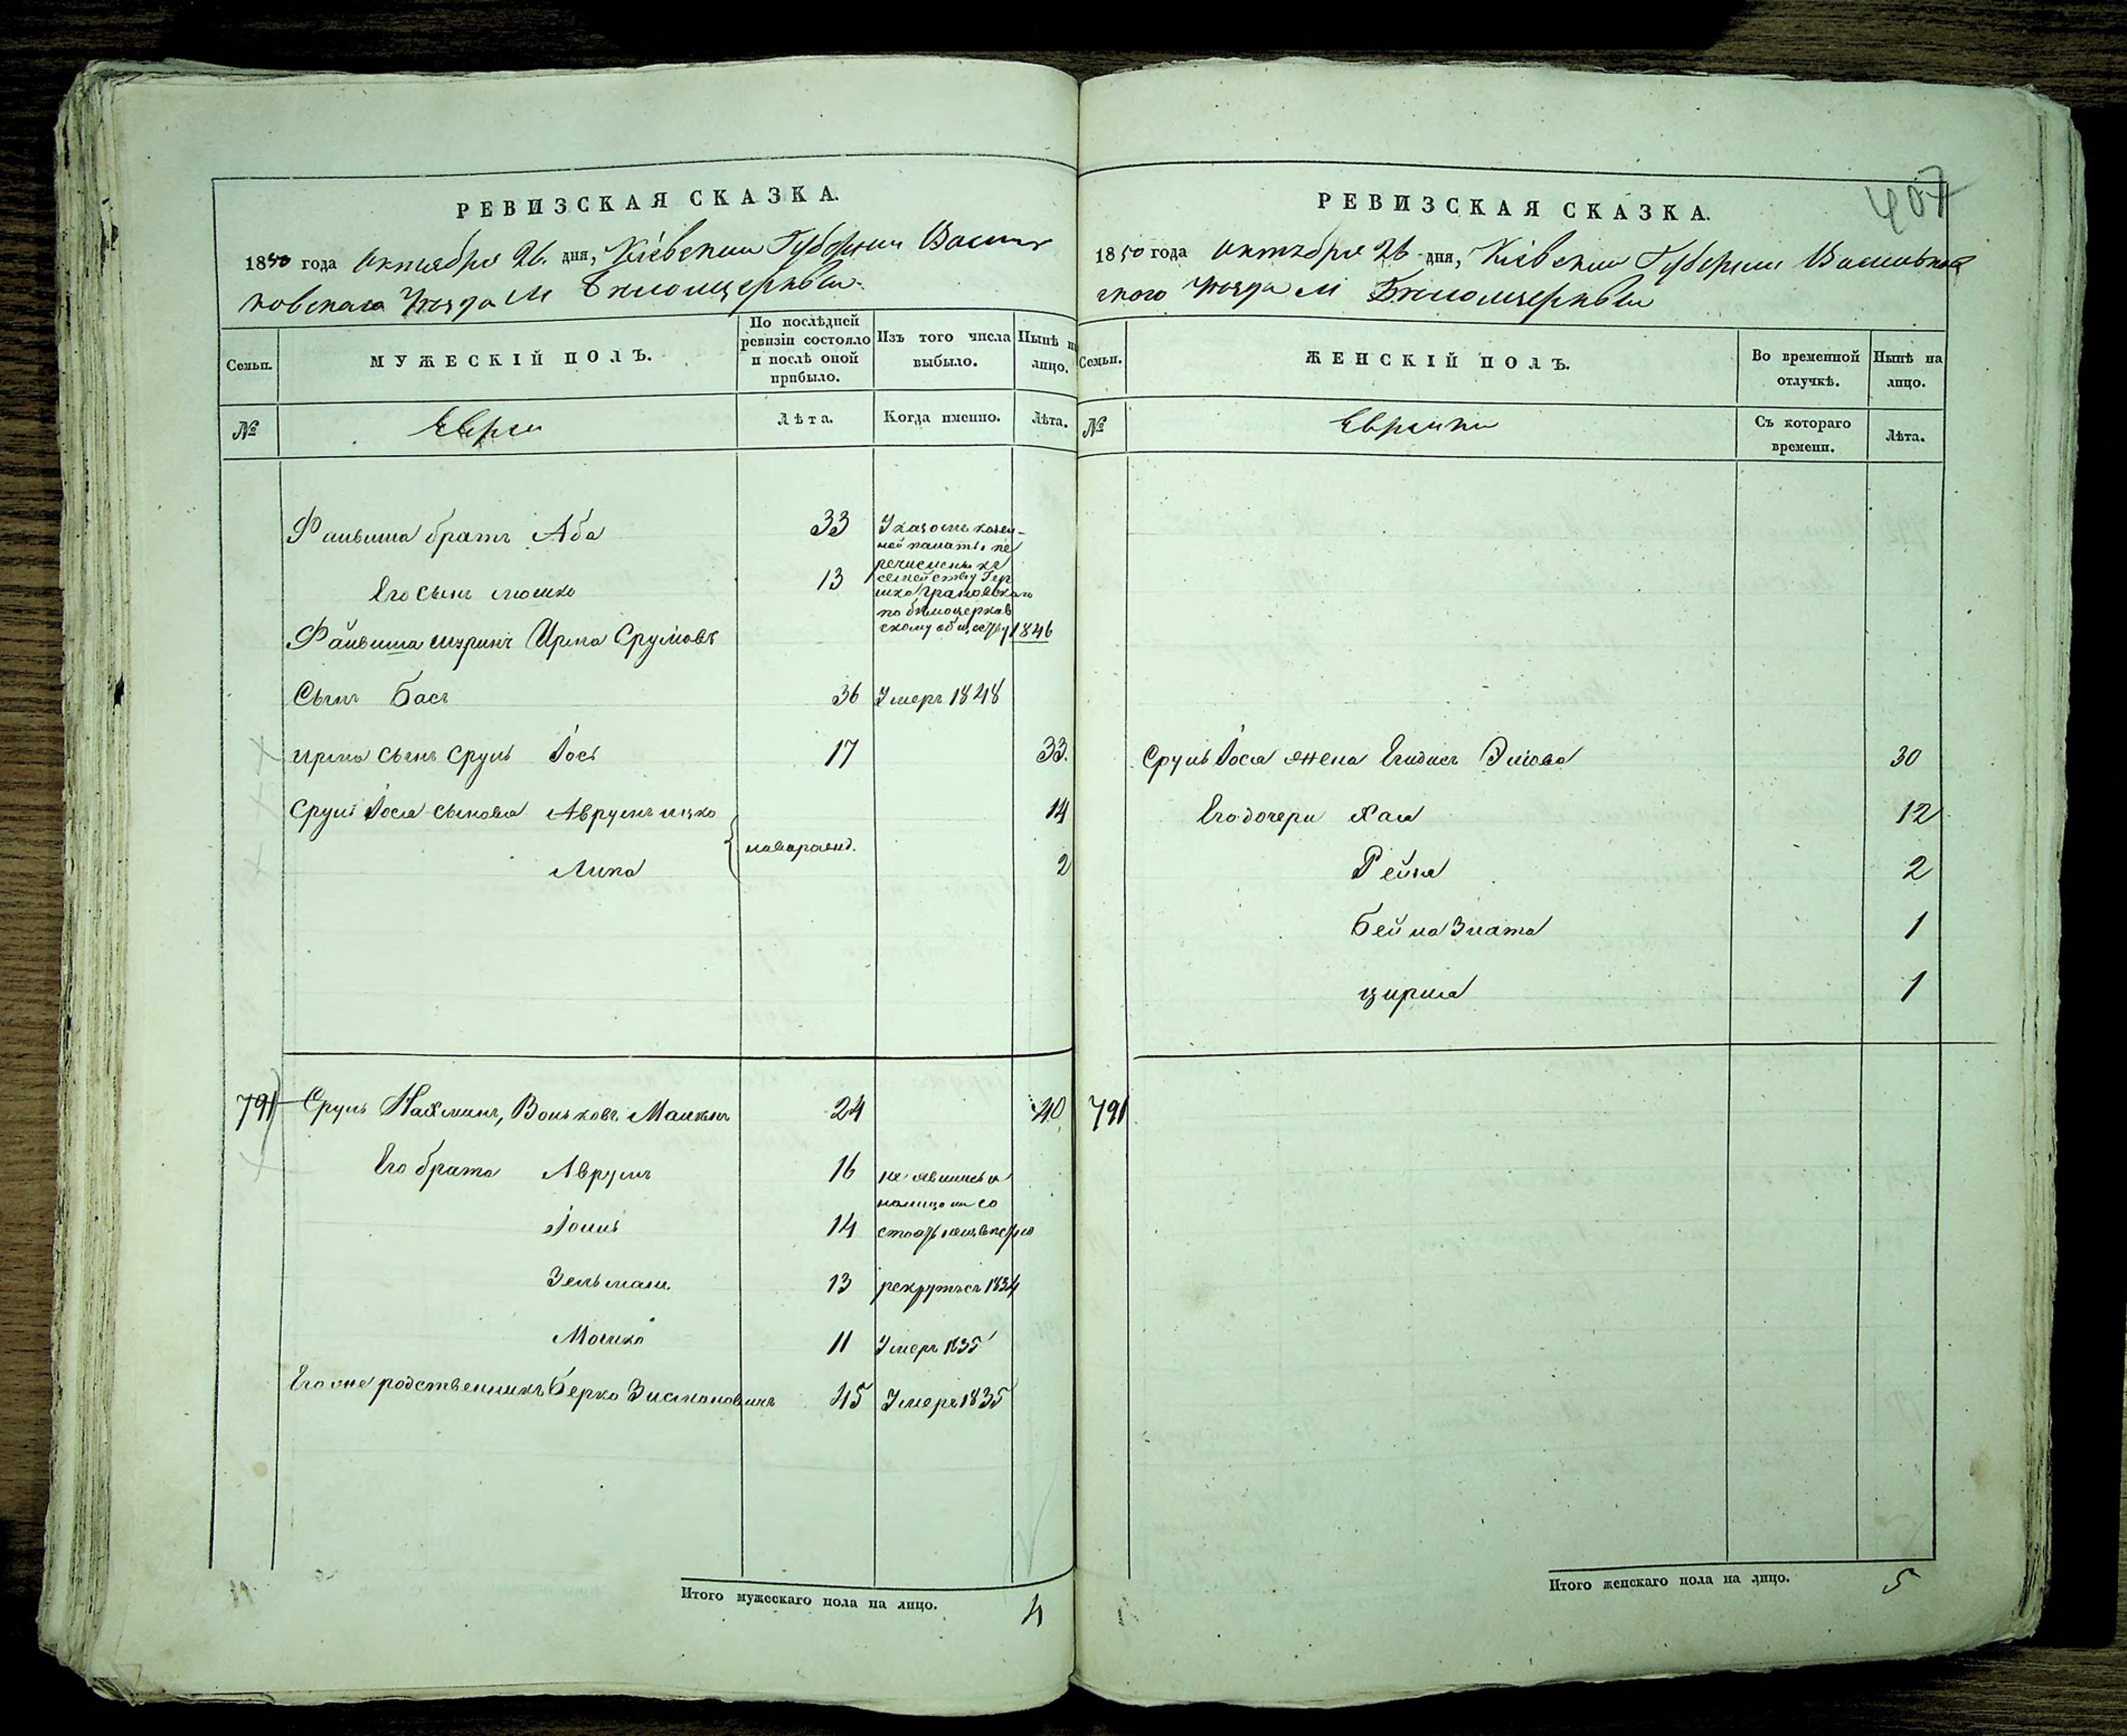 РЕВИЗСКАЯ СКАЗКА.
1850 года Октября 26. дня, Кіевскии Губернии Василь
ковскаго Уезда М Белоцеркви
Семьи. МУЖЕСКІЙ ПОЛЪ. По послѣдней ревизіи состояло и послѣ оной прибыло. Изъ того числа выбыло. Нынѣ на лицо.
№ Евреи Лѣта. Когда именно. Лѣта.
Файвиша братъ Аба 33 Указомъ казен-
ной палаты пе
речислены къ
Его сынъ мошко 13 семейству Гер
шка
по белоцерков
скому обществу 1846
Файвиша шуринъ Ирма Срулёвъ
Сынъ Басъ 36 Умеръ 1848
ирма сынъ Сруль Іось 17 33.
Сруль Іося сыновья Аврумъ ицко 14
новорожд.
Липа 2
791 Сруль Нахманъ, Вольковъ Малкинъ 24 40
Его брата Аврумъ 16 не явились и
налицо не со
Іоиль 14 стоятъ неизвестно
Зельман 13 рекрутъсъ 1834
Мошко 11 Умеръ 1835
Его же родственникъ Берко Зисмановичъ 45 Умеръ 1835
Итого мужескаго пола на лицо. 4
407
РЕВИЗСКАЯ СКАЗКА.
1850 года Октября 26 дня, Кіевскии Губернии Васильков
ского Уезда М Белоцеркви
Семьи. ЖЕНСКІЙ ПОЛЪ. Во временной отлучкѣ. Нынѣ на лицо.
№ Еврейки Съ котораго времени. Лѣта.
Сруль Іося жена Ендись Элиова 30
Его дочери Хая 12
Рейза 2
Бейла Злата 1
цирля 1
791
Итого женскаго пола на лицо. 5